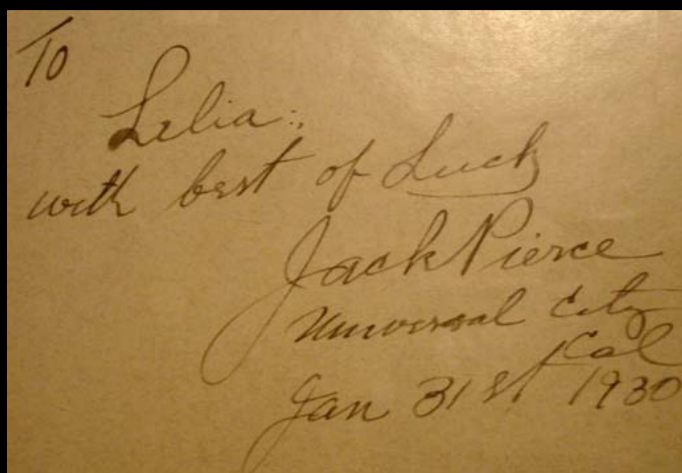 To
Lelia:,
with best of Luck
Jack Pierce
Universal City
Cal
Jan 31st 1930